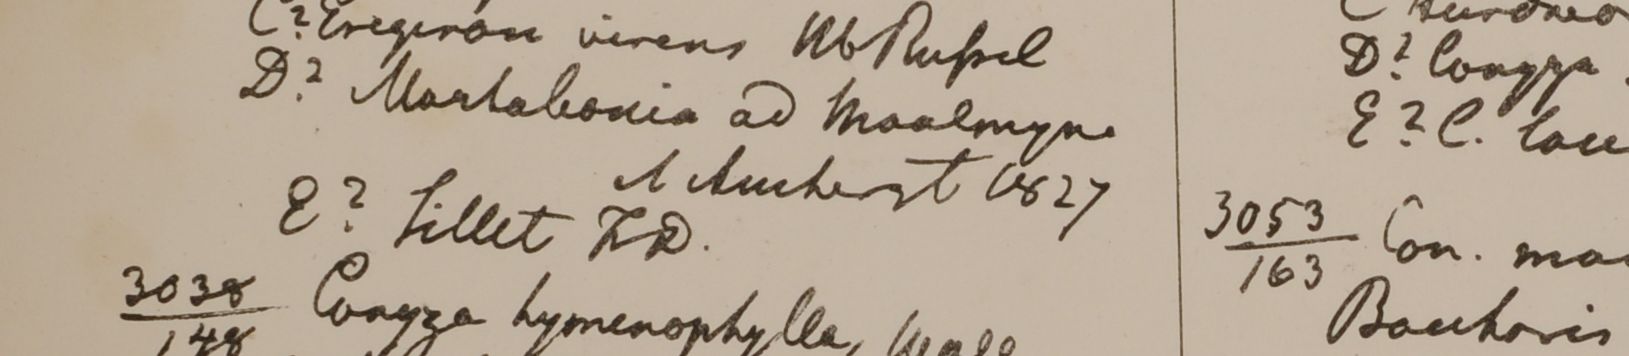 C? Eregiron virens Hb Russel
D? Martabania ad Moalmyne
& Amherst 1827
E? Sillet F.D.
3038
148 Conyza hymenophylla, Wall
D? Conyza
E? C.
3053
163 Con.
Baccharis